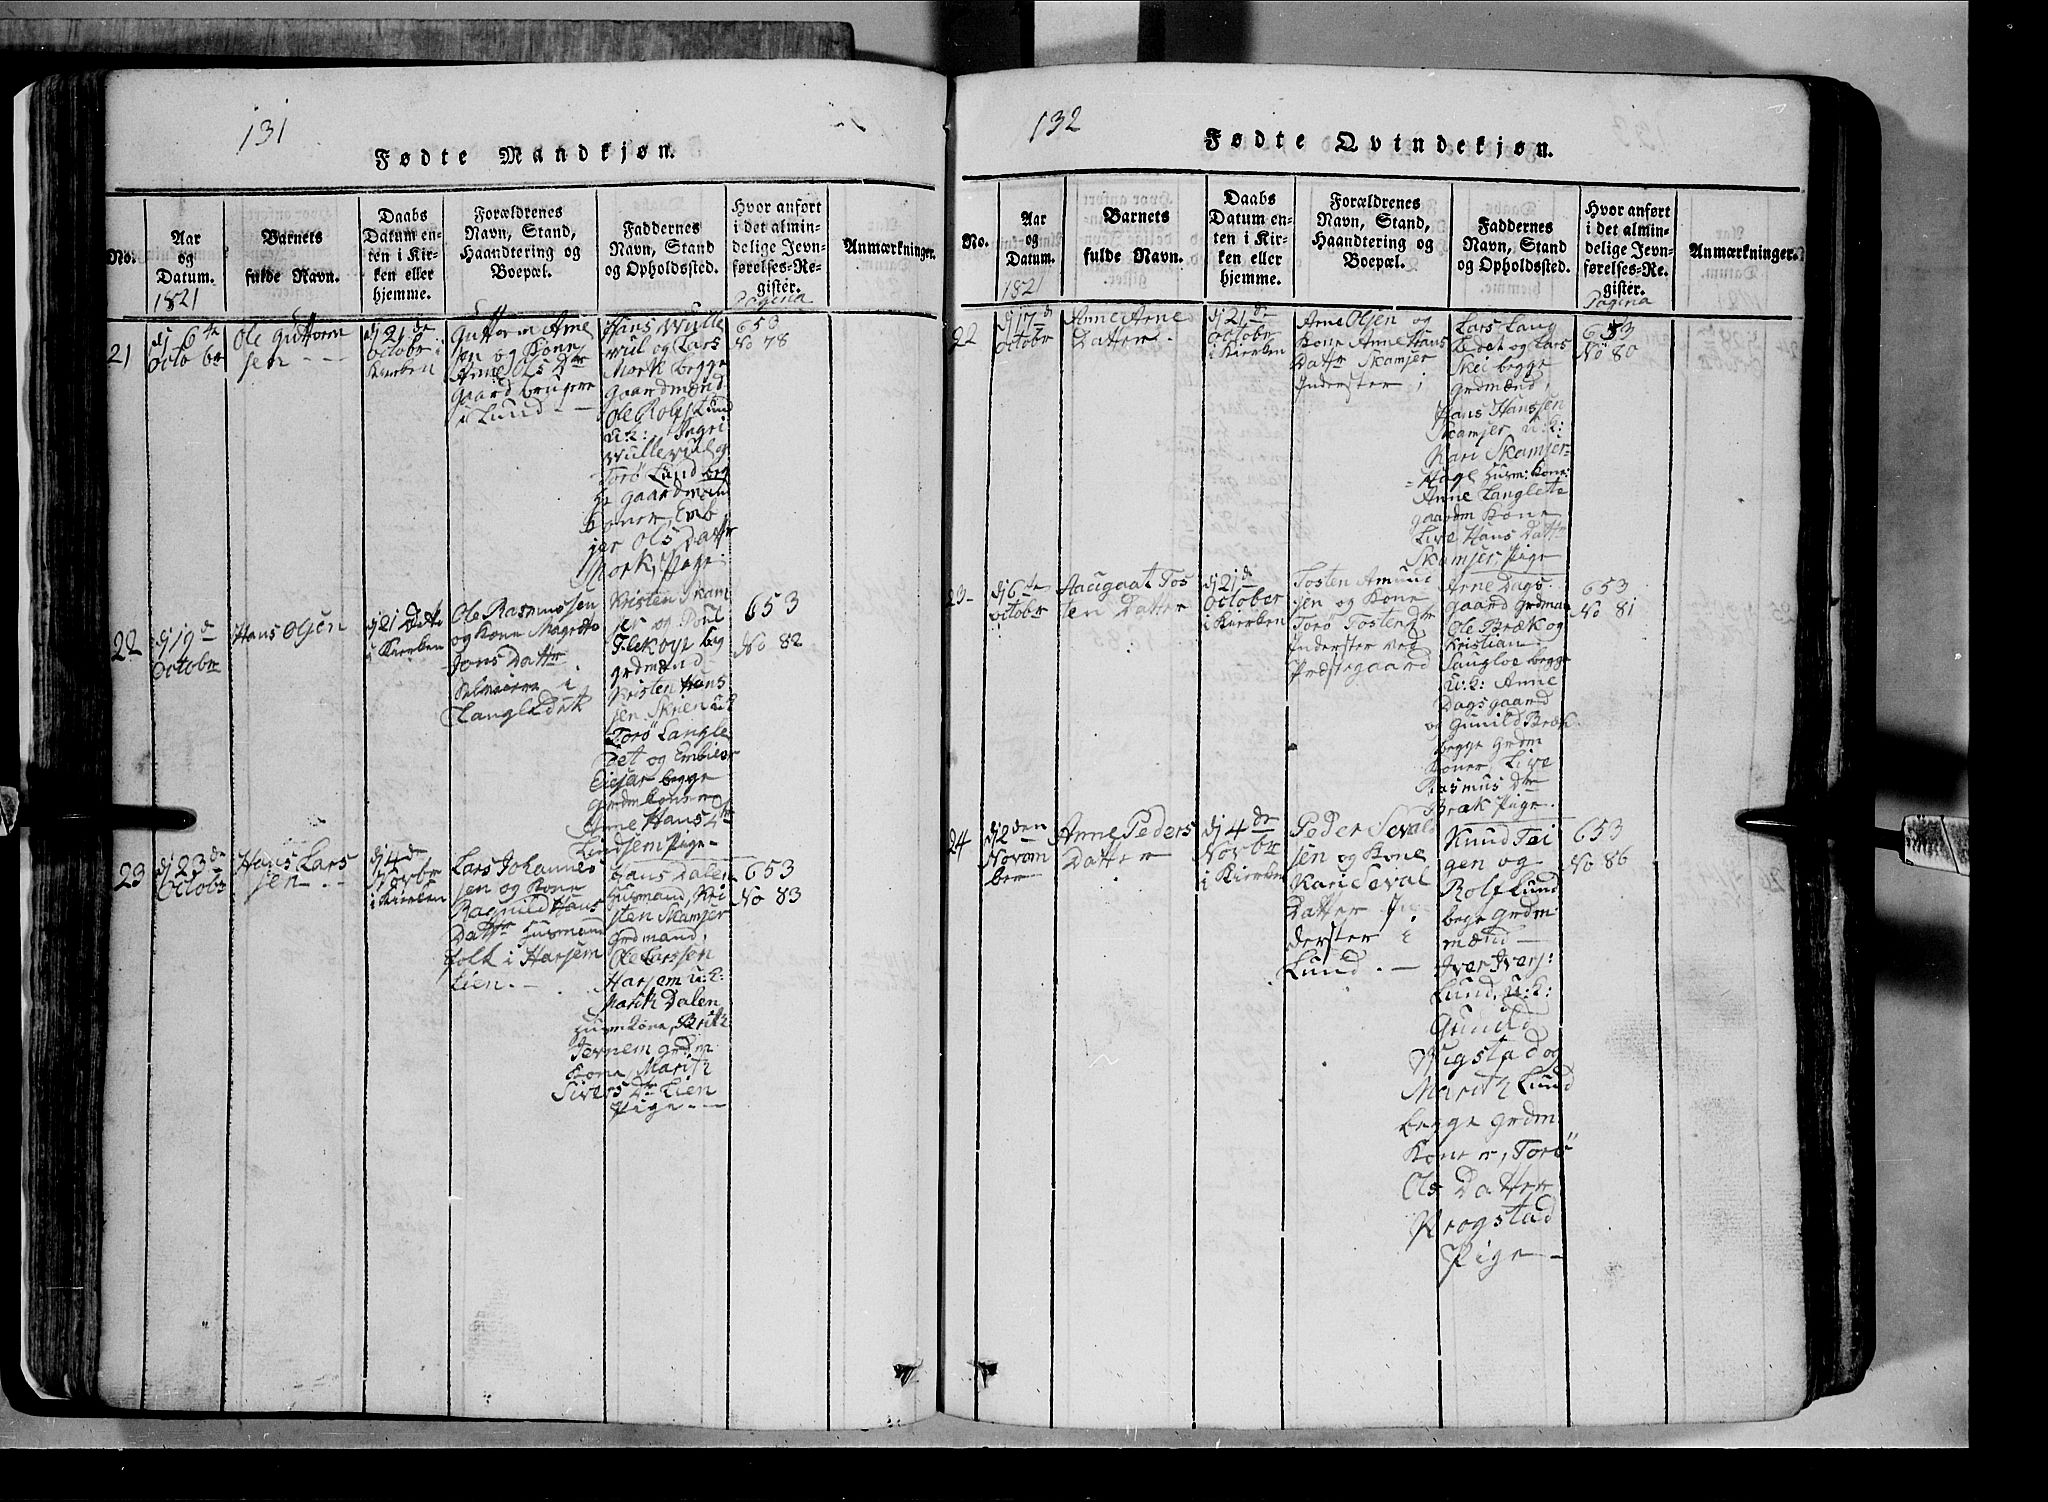 131
Fødte Mandkjøn.
No.
Aar
og
Datum.
1821
Barnets
fulde Navn.
Daabs
Datum en-
ten i Kir-
ken eller
hjemme.
Forældrenes
Navn, Stand,
Haandtering og
Boepæl.
Faddernes
Navn, Stand
og Opholdssted.
Hvor anført
i det almin-
delige Jevn-
førelses-Re-
gister.
Pagina
Anmærkninger.
21
dj 6te
Octobr
Ole Guttorm
sen
dj 21de
Octobr i
Kierken
Guttorm Arne
sen og Kone
Anne Ols Dtr
gaard brugere
i Lund
Hans Wulle
wul og Lars
Mork begge
gaardmænd
Ole Rolfs Lund
u:k: Ingri
Wullewul og
Torø Lund beg
ge gaardmands
koner, Emb
jør Ols Dattr
Mork, Pige
653
No 78
22
dj 19de
Octobr
Hans Olsen
dj 21 Dette
i Kierken
Ole Rasmussen
og Kone Magrette
Jons Dattr
Selveiere i
Langledet
Kristen Skam
fer og Poul
Flekøye beg
grdmænd
Kristen Hans
sen Skrien u:k
Torø Langle
det og Embiør
begge
grdm koner
Anne Hans Dtr
Lindsem Pige
653
No 82
23
dj 23de
Octobr
Hans Lars
sen
dj 4de
Novbr
i Kierken
Lars Johannes
sen og Kone
Ragnild Hans
Dattr Husmand
folk i Harsem
Lien.
Hans Dalen
Husmand, Kri
sten Skamfer
grdmand,
Ole Larssen
Harsem u:k:
Marith Dalen
Husm kone, Brith
Jevnem grdm
Kone, Marith
Sivers Dtr Lien
Pige
653
No 83
132
Fødte Qvindekjøn.
No.
Aar
og
Datum.
1821
Barnets
fulde Navn.
Daabs
Datum en-
ten i Kir-
ken eller
hjemme.
Forældrenes
Navn, Stand,
Haandtering og
Boepæl.
Faddernes
Navn, Stand
og Opholdssted.
Hvor anført
i det almin-
delige Jevn-
førelses-Re-
gister.
Pagina
Anmærkninger.
22
dj 17de
Octobr
Anne Arne
Datter
dj 21de
Octobr
i Kierken
Arne Olsen og
Kone Anne Hans
Dattr Skamfer
Inderster i
Lars Lang
ledet og Lars
Skei begge
grdmænd,
Hans Hanssen
Skamfer u:k:
Kari Skamfer-
Hage Husm: Kone:
Anne Langlete
gaardm Kone
Live Hans Dattr
Skamfer, Pige
653
No 80
23
dj 6te
Octobr
Haugaat Tos
ten Datter
dj 21de
October
i Kierken
Tosten Amund
sen og Kone
Torø Tosten Dtr
Inderster ved
Prestegaard
Arne Dags
gaard Grdman
Ole Bræk og
Kristian
Saugloe begge
u:k: Anne
Dagsgaard
og Gunild Bræk
begge grdm
koner, Live
Rasmus Dtr
Bræk Pige.
653
No 81
24
dj 2den
Novem
ber
Anne Peders
Datter
dj 4de
Novbr
i Kierken
Peder Sevald
sen og Kone
Kari Seval
Datter In
derster i
Lund.
Knud Tei
gen og
Rolf Lund
bege grdm
mænd
Iver Ivers:
Lund, u:k:
Gunild
Rigstad og
Marith Lund
begge grdm
koner, Torø
Ols Datter
Krogstad
Pige
653
No 86